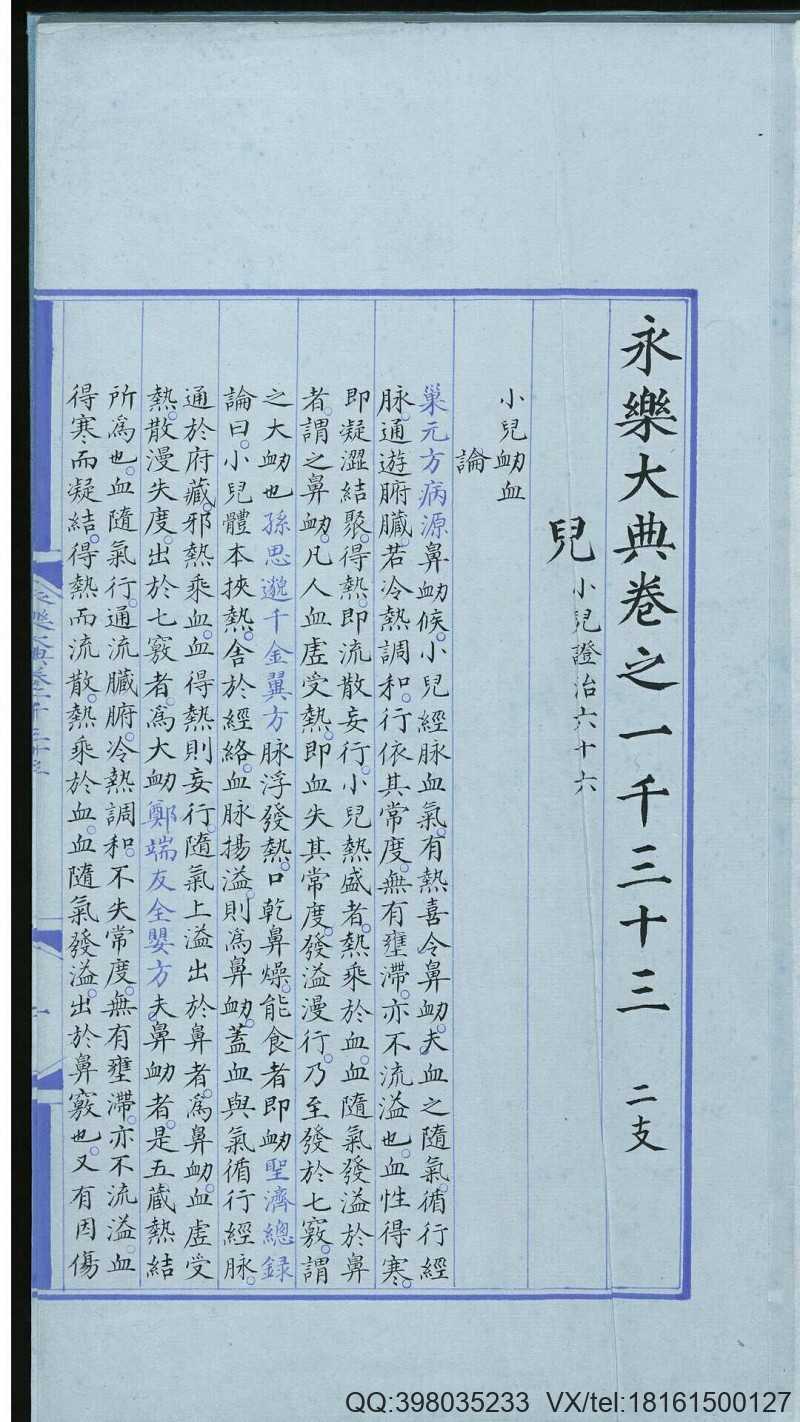 永樂大典卷之一千三十三 二支
兒 小兒證治六十六
小兒衂血
論
巢元方病源鼻衂候。小兒經脉血氣。有熱喜令鼻衂。夫血之隨氣。循行經
脉。通遊腑臟。若冷熱調和。行依其常度。無有壅滯。亦不流溢也。血性得寒。
即凝澀結聚。得熱。即流散妄行。小兒熱盛者。熱乘於血。血隨氣發溢於鼻
者。謂之鼻衂。凡人血虛受熱。即血失其常度。發溢漫行。乃至發於七竅。謂
之大衂也孫思邈千金翼方脉浮發熱。口乾鼻燥。能食者即衂聖濟總錄
論曰。小兒體本挾熱。舍於經絡。血脉揚溢。則為鼻衂。蓋血與氣循行經脉。
通於府藏。邪熱乘血。血得熱則妄行。隨氣上溢出於鼻者。為鼻衂。血虛受
熱。散漫失度。出於七竅者。為大衂鄭端友全嬰方夫鼻衂者。是五藏熱結
所為也。血隨氣行。通流臟腑。冷熱調和。不失常度。無有壅滯。亦不流溢。血
得寒而凝結。得熱而流散。熱乘於血。血隨氣發溢。出於鼻竅也。又有因傷
永樂大典卷一千三十三
一
QQ:398035233 VX/tel:18161500127